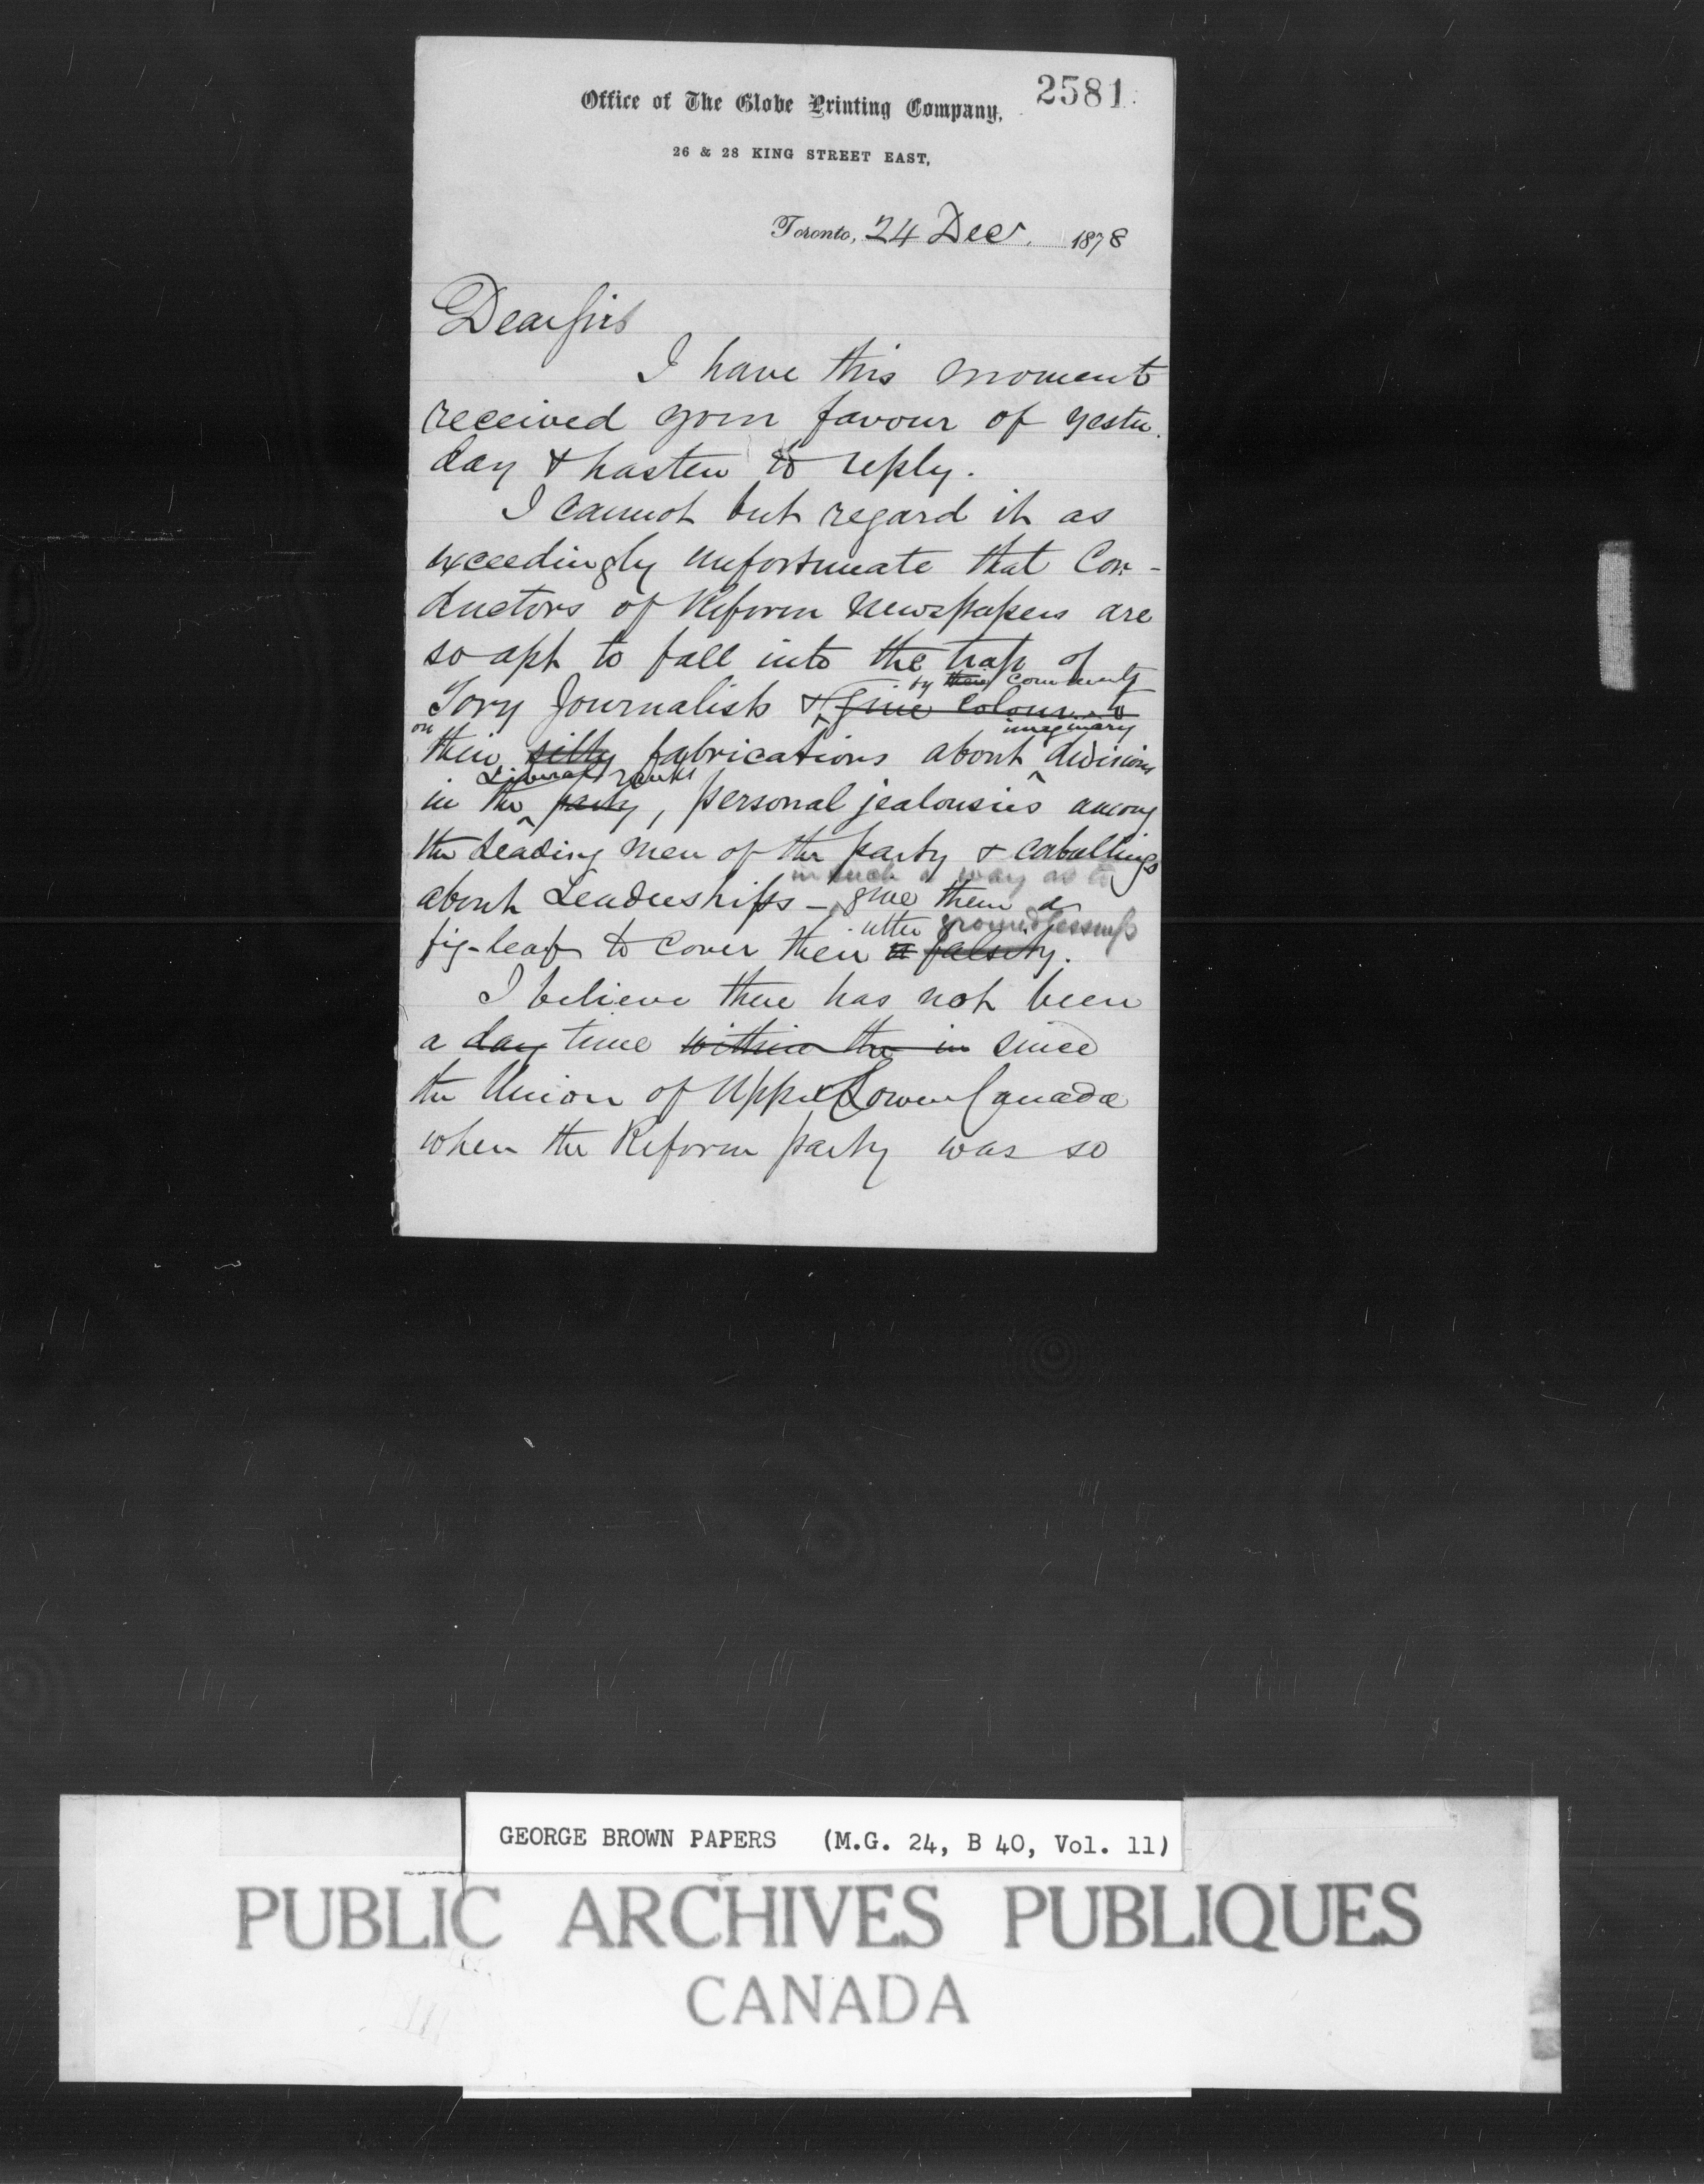 2581
Office of The Globe Printing Company,
26 & 28 KING STREET EAST,
Toronto, 24 Decr. 1878
Dear Sirs
I have this moment
received your favour of yester.
day & hasten to reply.
I cannot but regard it as
exceedingly unfortunate that Con-
ductors of Reform Newspapers are
so apt to fall into the trap of
by their comments
Tory Journalists & give colour to
on imaginary
their silly fabrications about divisions
Liberal ranks
in the party, personal jealousies among
the Leading men of the party & caballings
in such a way as to
about Leaderships - give them a
utter groundlessness
fig-leaf to cover their u falsity.
I believe there has not been
a day time within the in since
the Union of Upper & Lower Canada
when the Reform party was so
GEORGE BROWN PAPERS (M.G. 24, B 40, Vol. 11)
PUBLIC ARCHIVES PUBLIQUES
CANADA